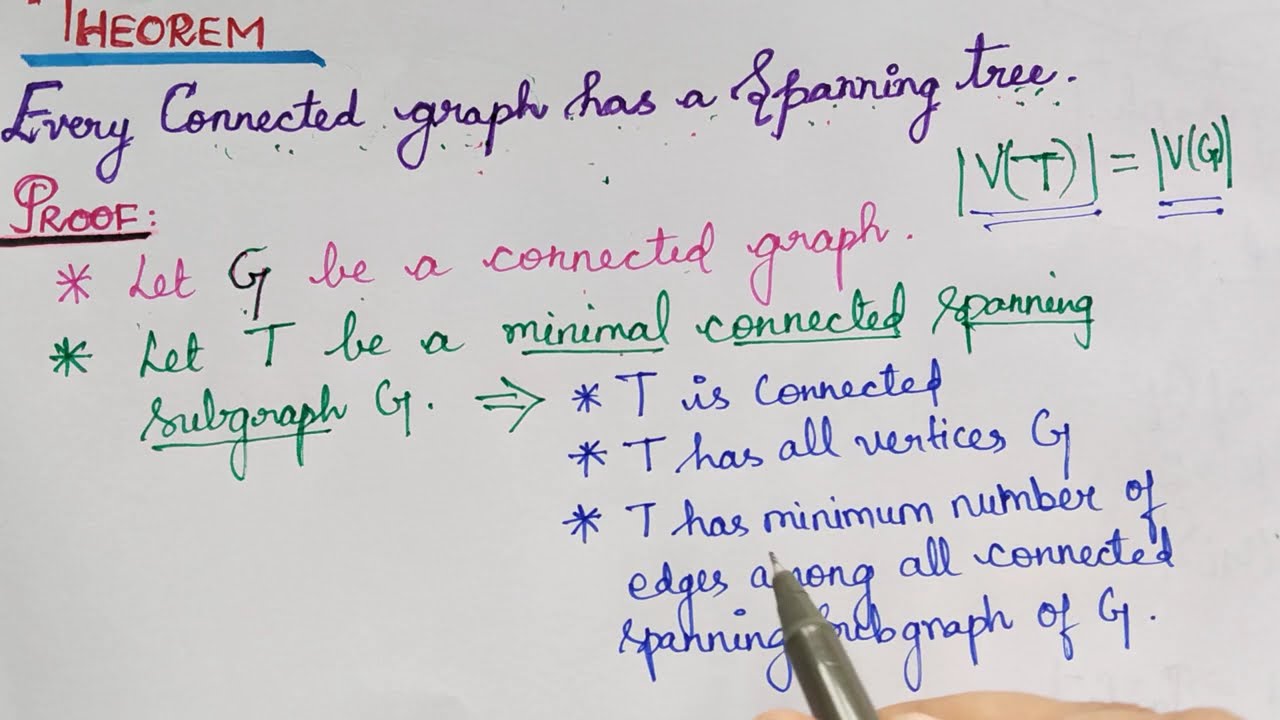 THEOREM
Every Connected graph has a Spanning tree.
|V(T)| = |V(G)|
PROOF:
* Let G be a connected graph.
* Let T be a minimal connected spanning
subgraph G. ⇒ * T is connected
* T has all vertices G
* T has minimum number of
edges among all connected
spanning subgraph of G.